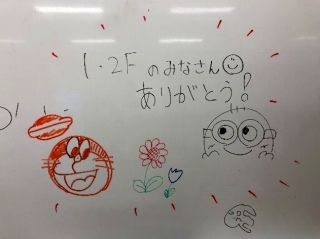 1・2Fのみなさん
ありがとう!